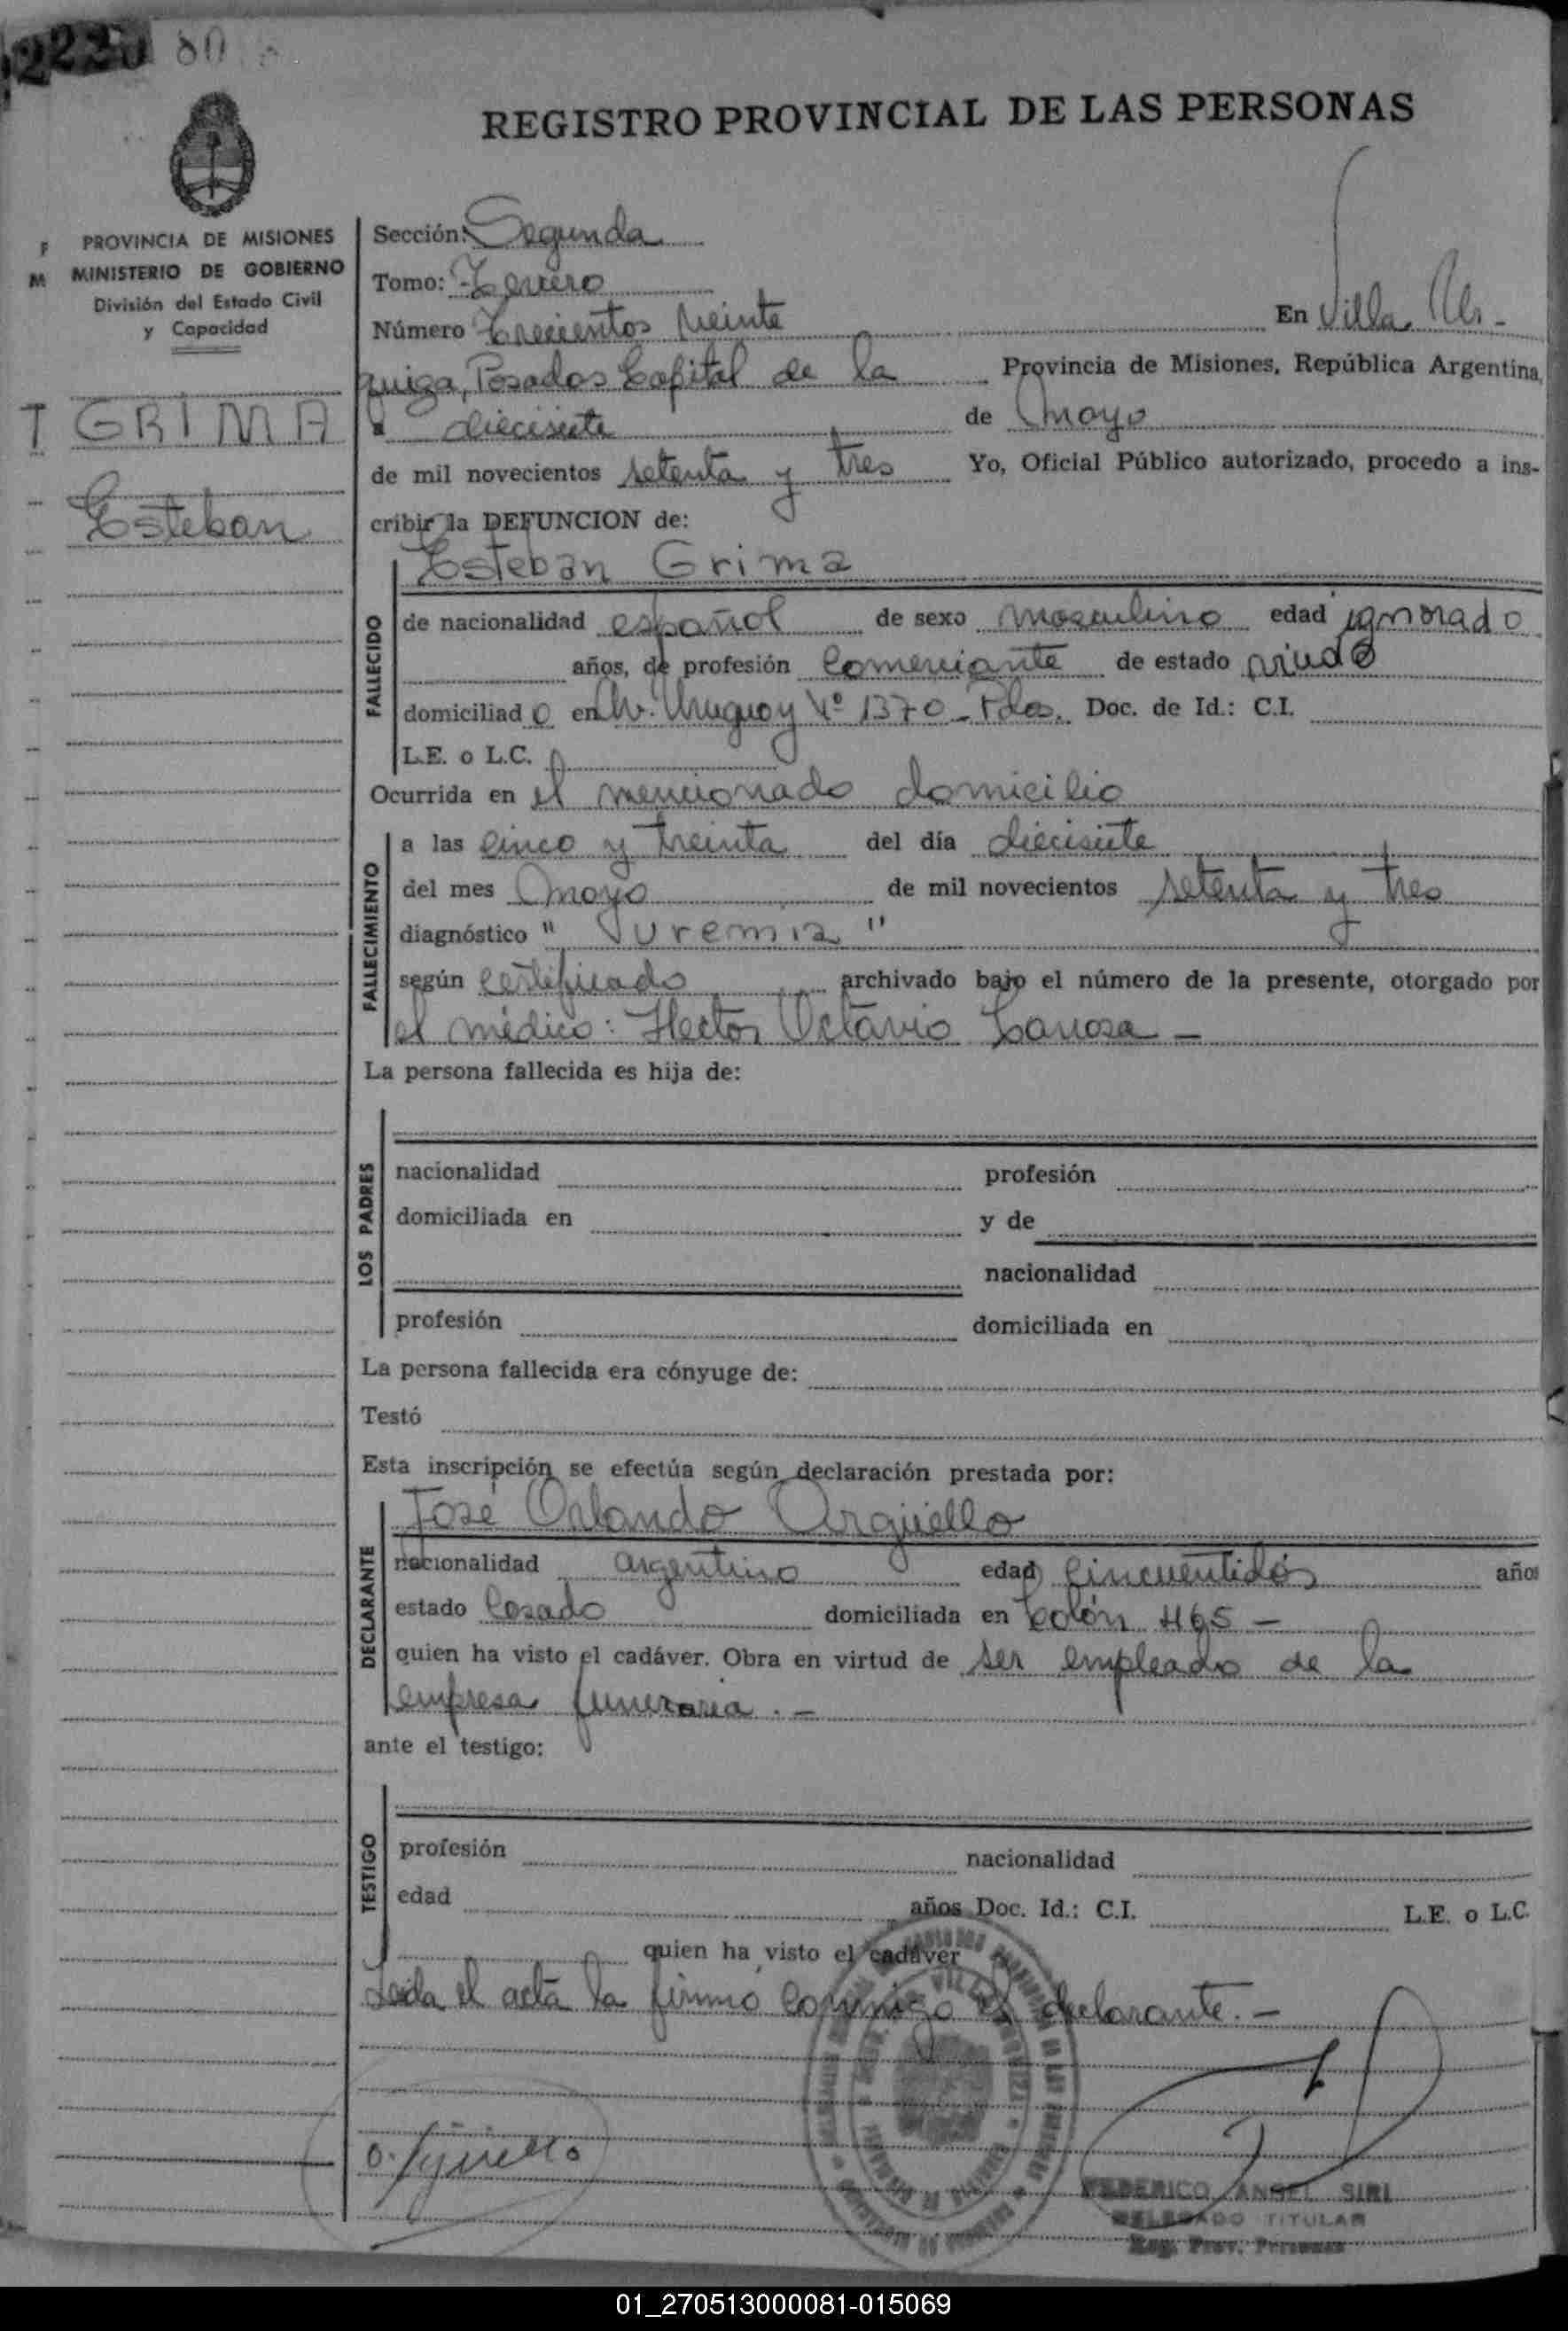 80
REGISTRO PROVINCIAL DE LAS PERSONAS
F PROVINCIA DE MISIONES
M MINISTERIO DE GOBIERNO
División del Estado Civil
y Capacidad
T GRIMA
Esteban
Sección: Segunda
Tomo: Tercero
Número Trecientos Veinte En Villa Ur-
quiza, Posadas Capital de la Provincia de Misiones, República Argentina,
a diecisiete de mayo
de mil novecientos setenta y tres Yo, Oficial Público autorizado, procedo a ins-
cribir la DEFUNCION de:
Esteban Grima
FALLECIDO
de nacionalidad español de sexo masculino edad ignorado
años, de profesión Comerciante de estado viudo
domiciliado en Av. Uruguay Nº 1370 - Pdas. Doc. de Id.: C.I.
L.E. o L.C.
Ocurrida en el mencionado domicilio
FALLECIMIENTO
a las cinco y treinta del día diecisiete
del mes mayo de mil novecientos setenta y tres
diagnóstico " uremia "
según certificado archivado bajo el número de la presente, otorgado por
el médico: Hector Octavio
La persona fallecida es hija de:
LOS PADRES
nacionalidad profesión
domiciliada en y de
nacionalidad
profesión domiciliada en
La persona fallecida era cónyuge de:
Testó
Esta inscripción se efectúa según declaración prestada por:
DECLARANTE
José Orlando Argüello
nacionalidad argentino edad cincuentidós años
estado Casado domiciliada en Colón 465 -
quien ha visto el cadáver. Obra en virtud de ser empleado de la
empresa funeraria . -
ante el testigo:
TESTIGO
profesión nacionalidad
edad años Doc. Id.: C.I. L.E. o L.C.
quien ha visto el cadáver
Leida el acta la firmó conmigo el declarante. -
FEDERICO ANGEL SIRI
DELEGADO TITULAR
Reg. Prov. Personas
01_270513000081-015069